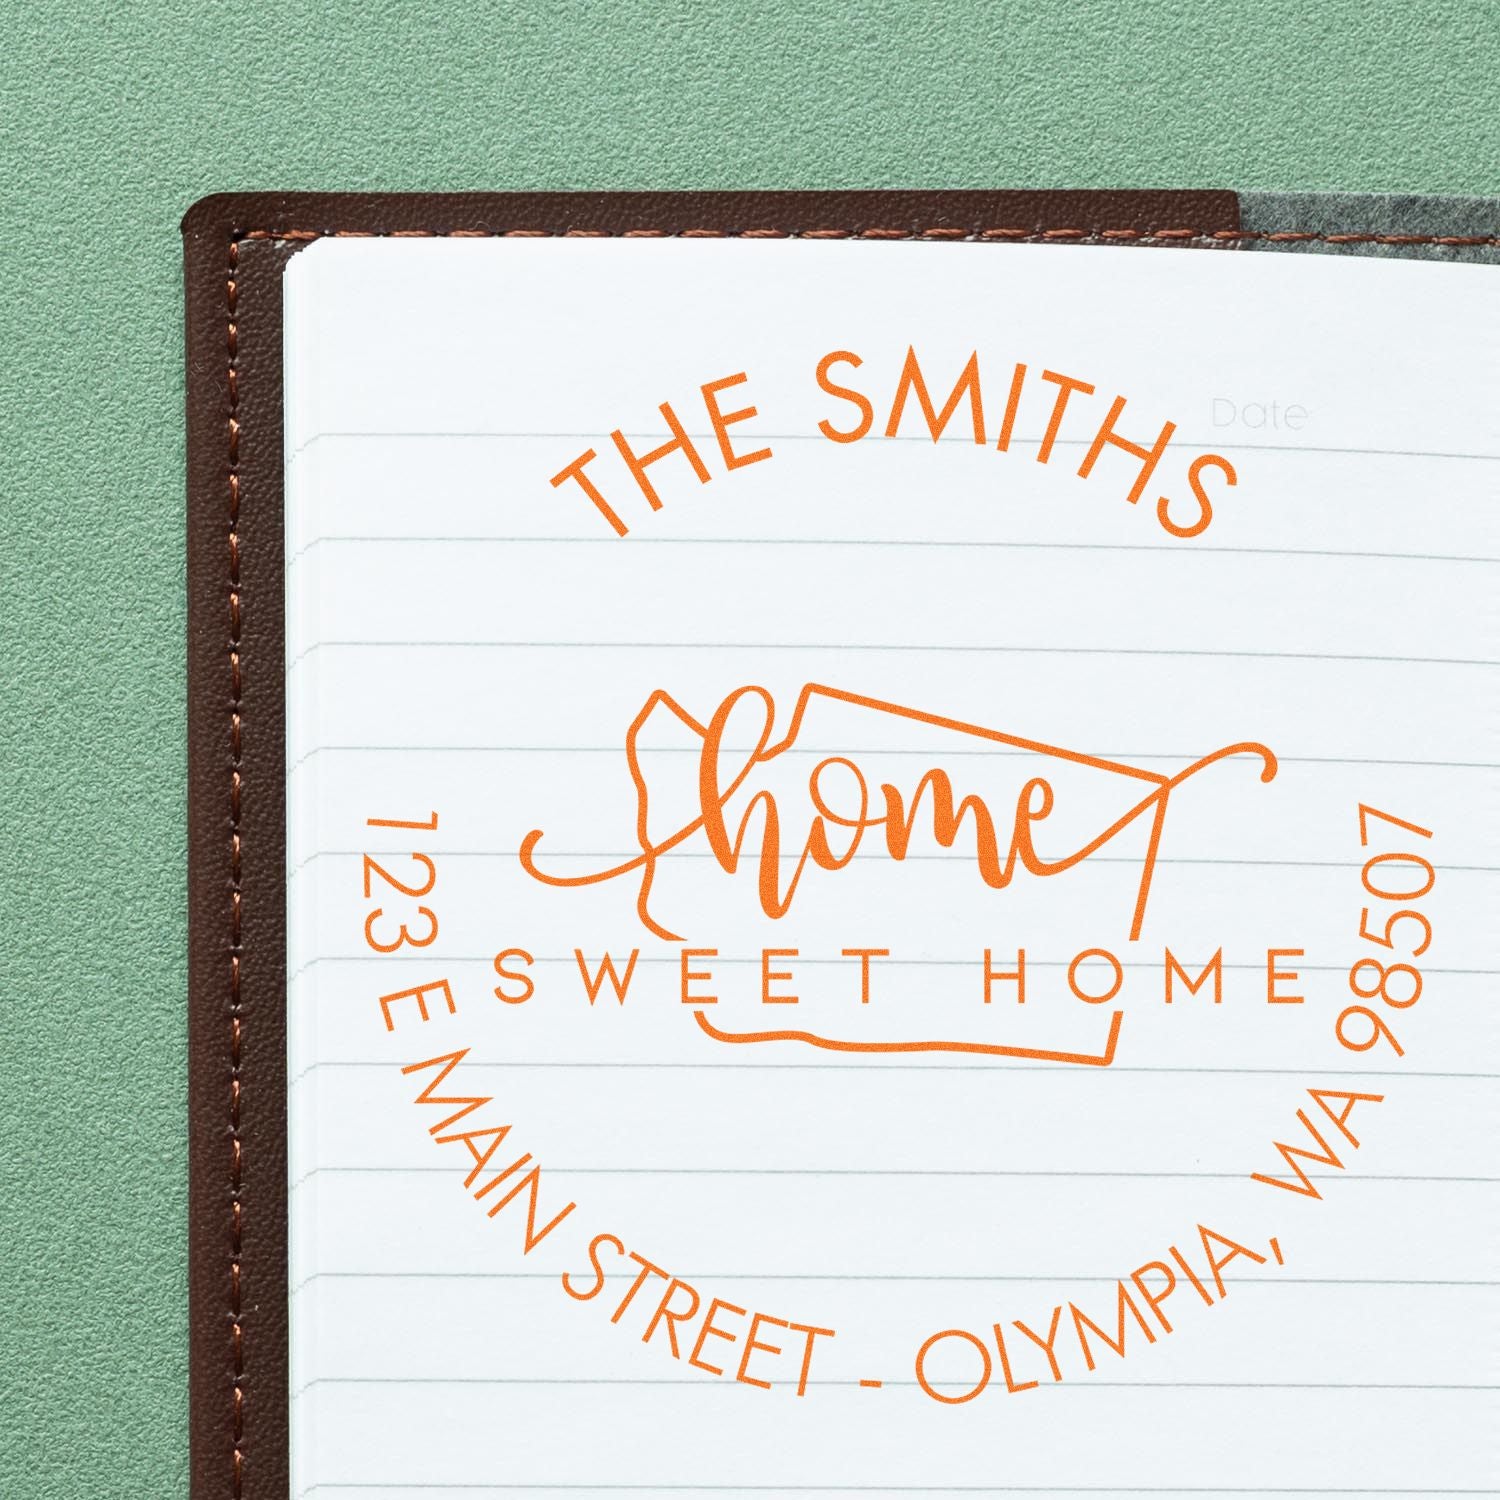 THE SMITHS
Date
home
SWEET HOME
123 E MAIN STREET - OLYMPIA, WA 98507